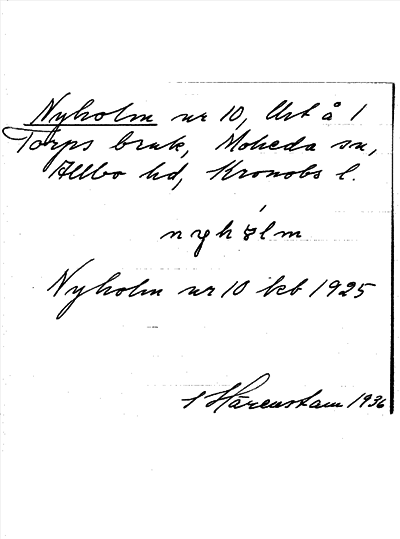 Nyholm nr 10, Urt å 1
Torps bruk, Moheda sn,
Allbo hd, Kronobs l.
nyhólm
Nyholm nr 10 kb 1925
Härenstam 1936